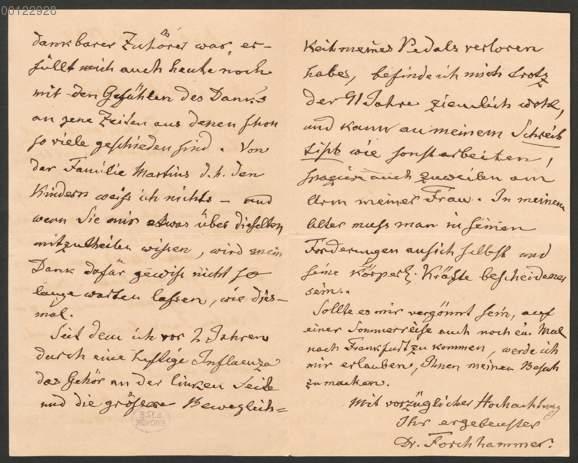 00122928
dankbarer Zuhörer war, er-
füllt mich auch heute noch
mit den Gefühlen des Danks
an jene Zeiten aus denen schon
so viele geschieden sind. Von
der Familie Martius d.h. den
Kindern weiss ich nichts – und
wenn Sie mir etwas über dieselben
mitzutheilen wissen, wird mein
Dank dafür gewiss nicht so
lange warten lassen, wie dies-
mal.
Seit dem ich vor 2 Jahren
durch eine heftige Influenza
das Gehör an der linken Seite
und die grössere Beweglich=
keit meines Pedals verloren
habe, befinde ich mich trotz
der 91 Jahre ziemlich wohl,
und kann an meinem Schreib
tisch wie sonst arbeiten,
spaziere auch zuweilen am
Arm meiner Frau. In meinem
Alter muss man in seinen
Forderungen an sich selbst und
seine körperl. Kräfte bescheidener
sein.
Sollte es mir vergönnt sein, auf
einer Sommerreise auch noch ein Mal
nach Frankfurt zu kommen, werde ich
mir erlauben, Ihnen meinen Besuch
zu machen.
Mit vorzüglicher Hochachtung
Ihr ergebenster
Dr. Forchhammer.